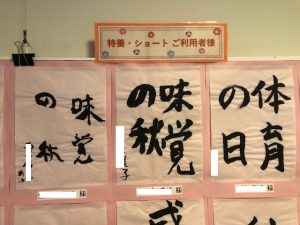 特養・ショートご利用者様
体育
の日
味覚
の秋
子
味覚
の秋
様
様
様